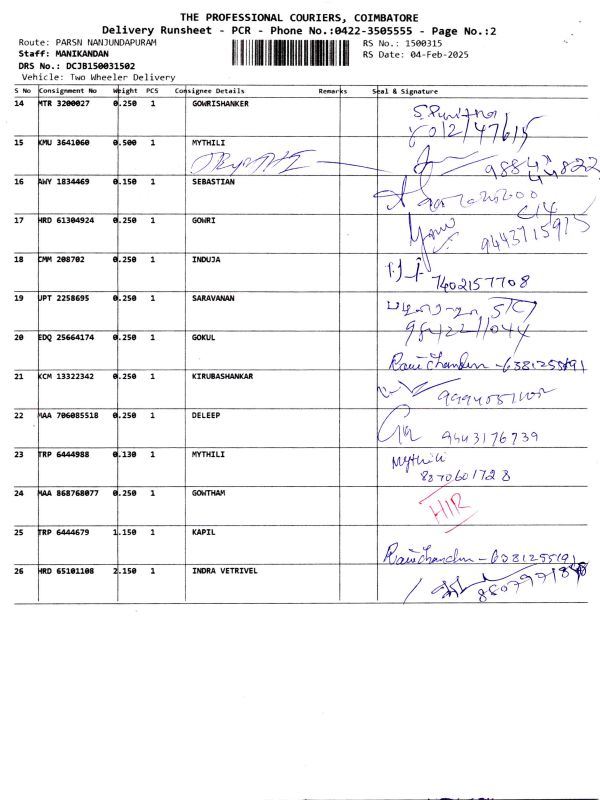 THE PROFESSIONAL COURIERS, COIMBATORE
Delivery Runsheet - PCR - Phone No.:0422-3505555 - Page No.:2
Route: PARSN NANJUNDAPURAM RS No.: 1500315
Staff: MANIKANDAN RS Date: 04-Feb-2025
DRS No.: DCJB150031502
Vehicle: Two Wheeler Delivery
S No Consignment No Weight PCS Consignee Details Remarks Seal & Signature
14 MTR 3200027 0.250 1 GOWRISHANKER
15 KMU 3641060 0.500 1 MYTHILI
16 AWY 1834469 0.150 1 SEBASTIAN
17 HRD 61304924 0.250 1 GOWRI
9443715915
18 CMM 208702 0.250 1 INDUJA
7402157708
19 JPT 2258695 0.250 1 SARAVANAN
9842211044
20 EDQ 25664174 0.250 1 GOKUL
Ravichandran - 6381255191
21 KCM 13322342 0.250 1 KIRUBASHANKAR
22 MAA 706085518 0.250 1 DELEEP
9443176739
23 TRP 6444988 0.130 1 MYTHILI Mythili
8870601728
24 MAA 868768077 0.250 1 GOWTHAM
25 TRP 6444679 1.150 1 KAPIL
Ravichandran - 6381255191
26 HRD 65101108 2.150 1 INDRA VETRIVEL